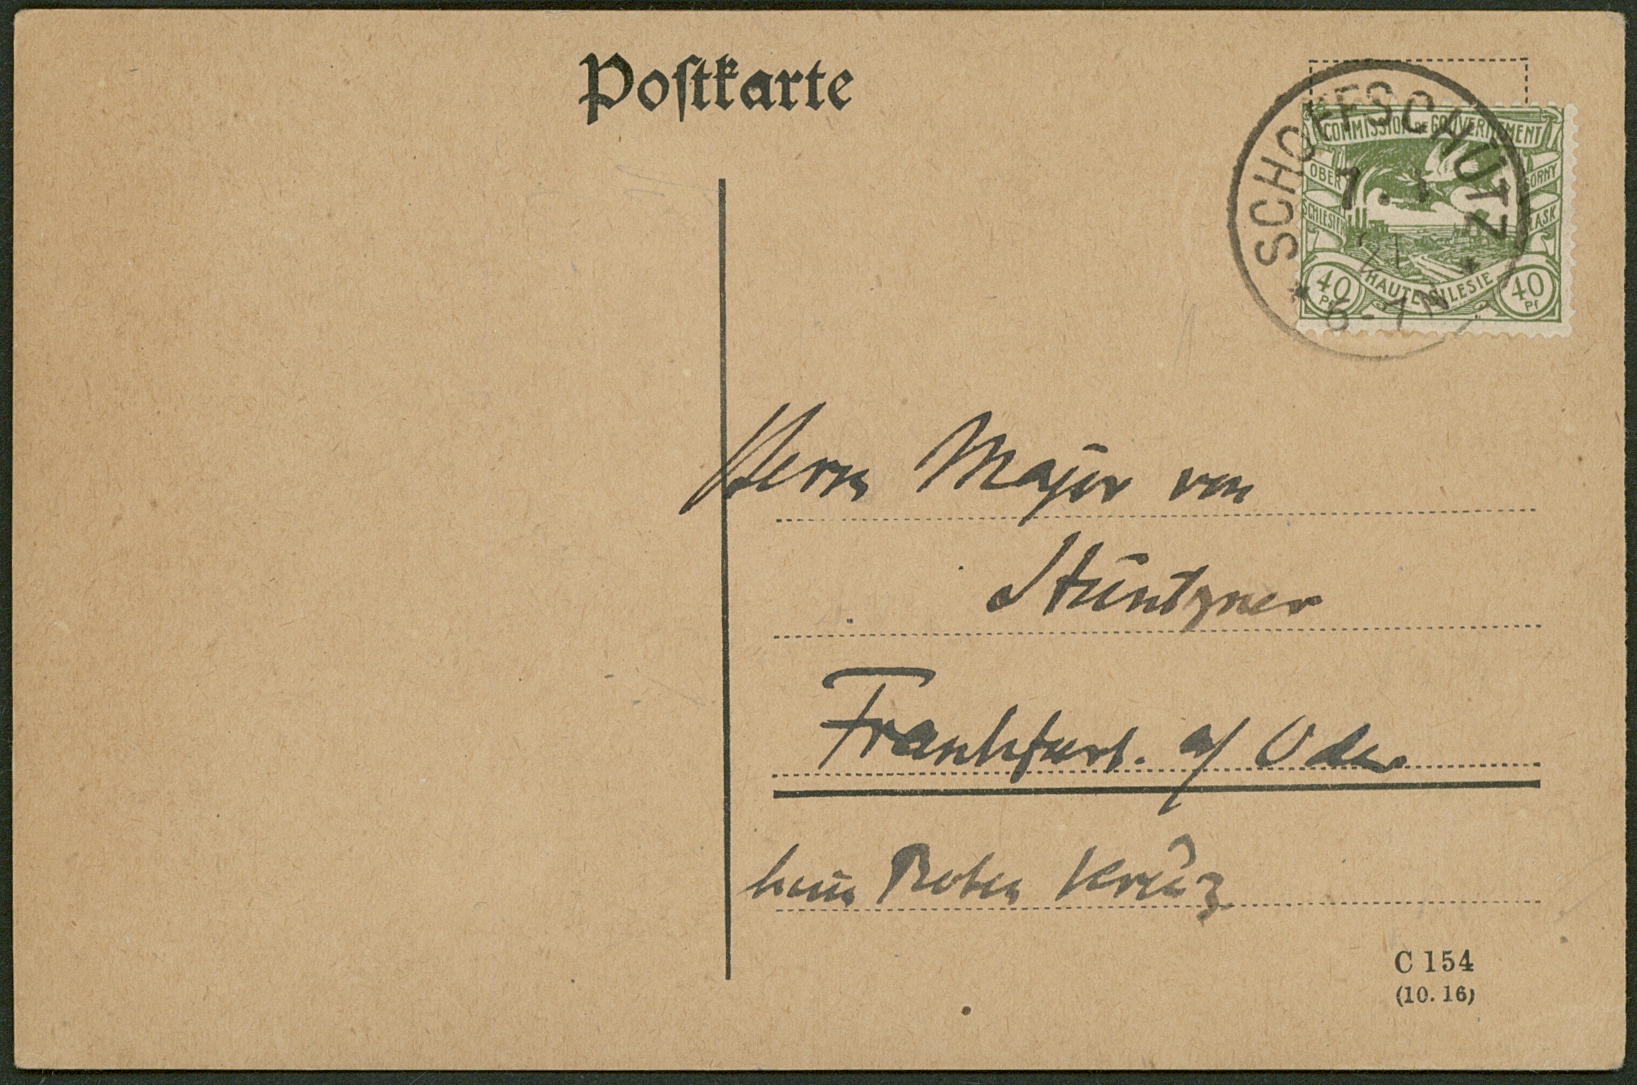 Postkarte
SCHOFFSCHÜTZ
COMMISSION DE GOUVERNEMENT
OBER GORNY
SCHLESIEN ŚLĄSK
7.
21
HAUTE SILESIE
40 Pf 40 Pf
* 6-7N *
Herrn Major von
Stüntzner
Frankfurt. a/ Oder
beim Roten Kreuz
C 154
(10. 16)